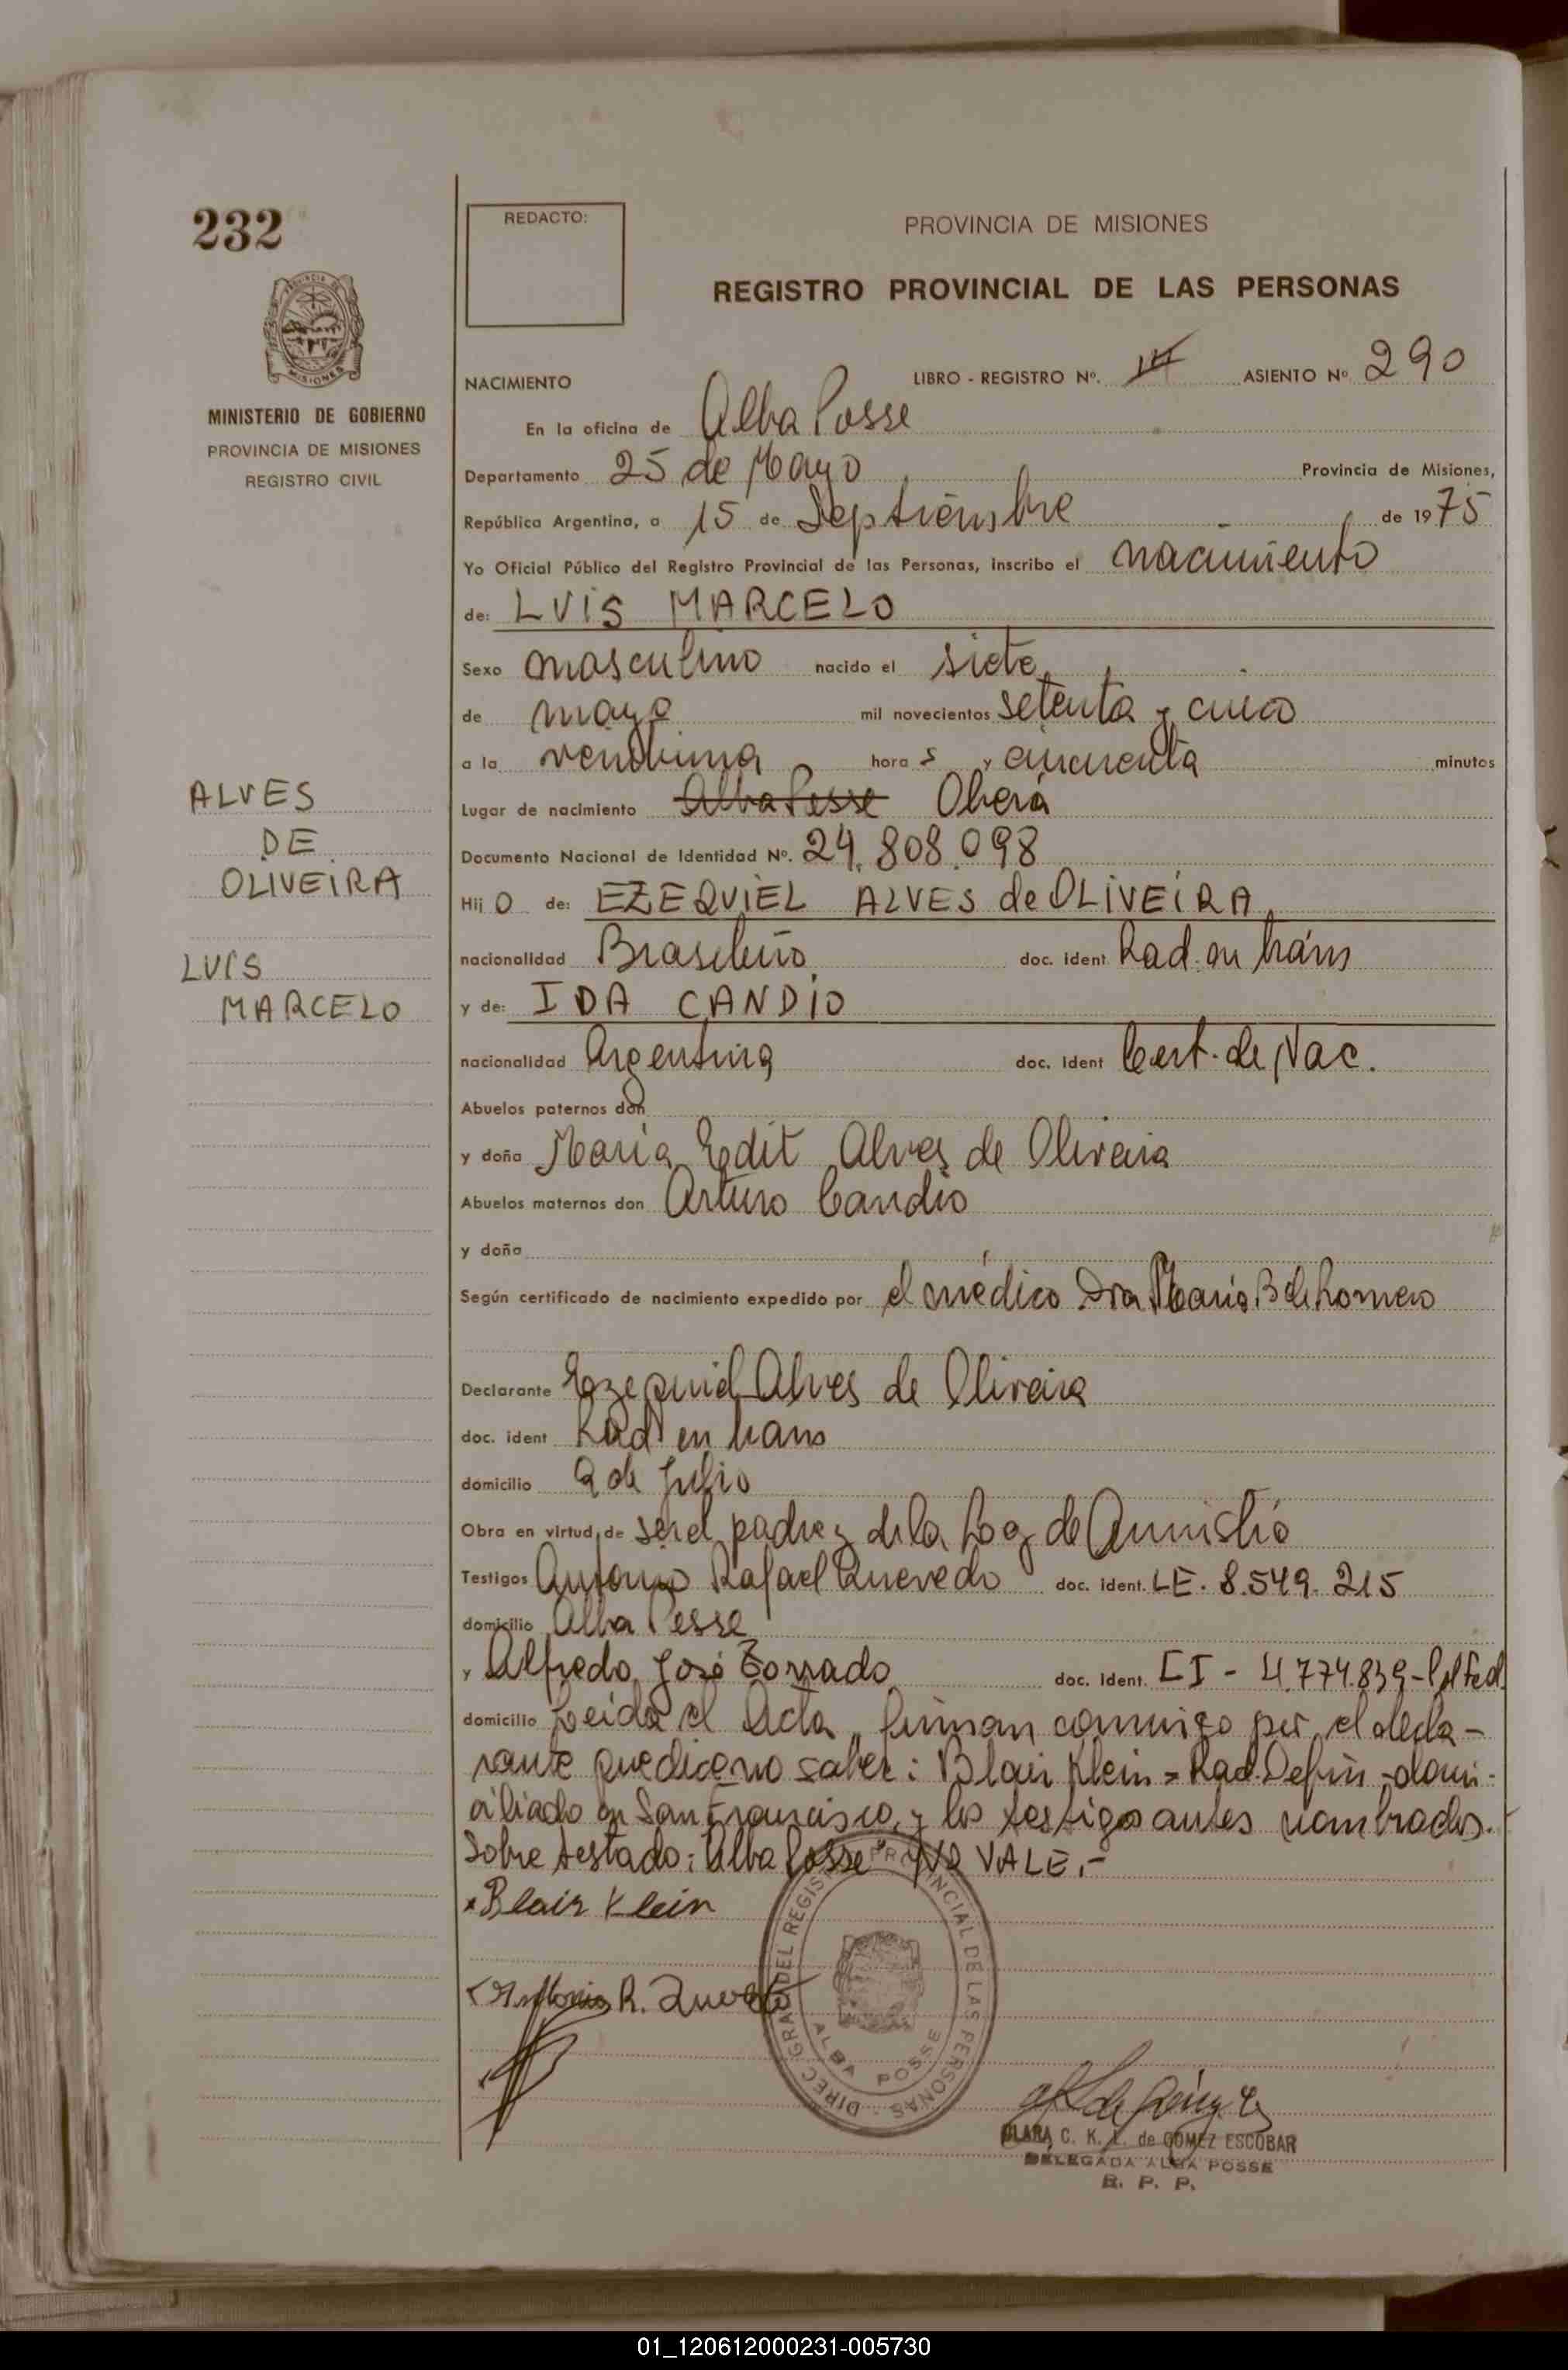 232
MINISTERIO DE GOBIERNO
PROVINCIA DE MISIONES
REGISTRO CIVIL
ALVES
DE
OLIVEIRA
LUIS
MARCELO
REDACTO:
PROVINCIA DE MISIONES
REGISTRO PROVINCIAL DE LAS PERSONAS
NACIMIENTO LIBRO - REGISTRO Nº. ASIENTO Nº 290
En la oficina de Alba Posse
Departamento 25 de Mayo Provincia de Misiones,
República Argentina, a 15 de Septiembre de 1975
Yo Oficial Público del Registro Provincial de las Personas, inscribo el nacimiento
de: LUIS MARCELO
Sexo masculino nacido el siete
de mayo mil novecientos setenta y cinco
a la veintiuna hora s y cincuenta minutos
Lugar de nacimiento Alba Posse Oberá
Documento Nacional de Identidad Nº. 24.808.098
Hij o de: EZEQUIEL ALVES de OLIVEIRA
nacionalidad Brasileño doc. ident Rad. en trám
y de: IDA CANDIO
nacionalidad Argentina doc. ident Cert. de Nac.
Abuelos paternos don
y doña María Edit Alves de Oliveira
Abuelos maternos don Arturo Candio
y doña
Según certificado de nacimiento expedido por el médico Dra María B de Romero
Declarante Ezequiel Alves de Oliveira
doc. ident Rad en tram
domicilio 9 de Julio
Obra en virtud de ser el padre y de la Ley de Amnistía
Testigos Antonio Rafael Quevedo doc. ident. LE. 8.549.215
domicilio Alba Posse
y Alfredo José Zorrado doc. ident. CI - 4.774.839 - Pol Fed.
domicilio Leída el Acta, firman conmigo por el decla-
rante que dice no saber: Blair Klein = Rad. Defin - domi-
ciliado en San Francisco, y los testigos antes nombrados.
Sobre testado: "Alba Posse" NO VALE.-
Blair Klein
Antonio R. Quevedo
DIREC. GRAL DEL REGISTRO PROVINCIAL DE LAS PERSONAS
ALBA POSSE
CLARA C. K. L. de GOMEZ ESCOBAR
DELEGADA ALBA POSSE
R. P. P.
01_120612000231-005730